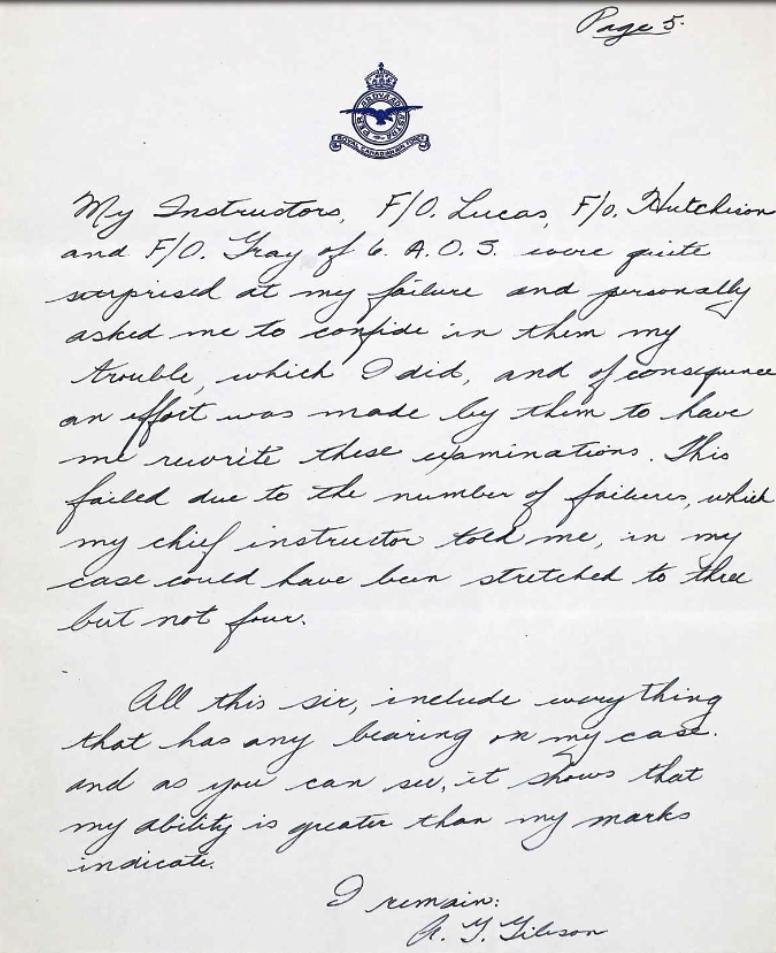 Page 5.
PER ARDUA AD ASTRA
ROYAL CANADIAN AIR FORCE
My Instructors, F/O. Lucas, F/O. Hutchison
and F/O. Gray of 6. A. O. S. were quite
surprised at my failure and personally
asked me to confide in them my
trouble, which I did, and of consequence
an effort was made by them to have
me rewrite these examinations. This
failed due to the number of failures, which
my chief instructor told me, in my
case could have been stretched to three
but not four.
All this sir, include everything
that has any bearing on my case.
and as you can see, it shows that
my ability is greater than my marks
indicate.
I remain:
A. G. Gibson